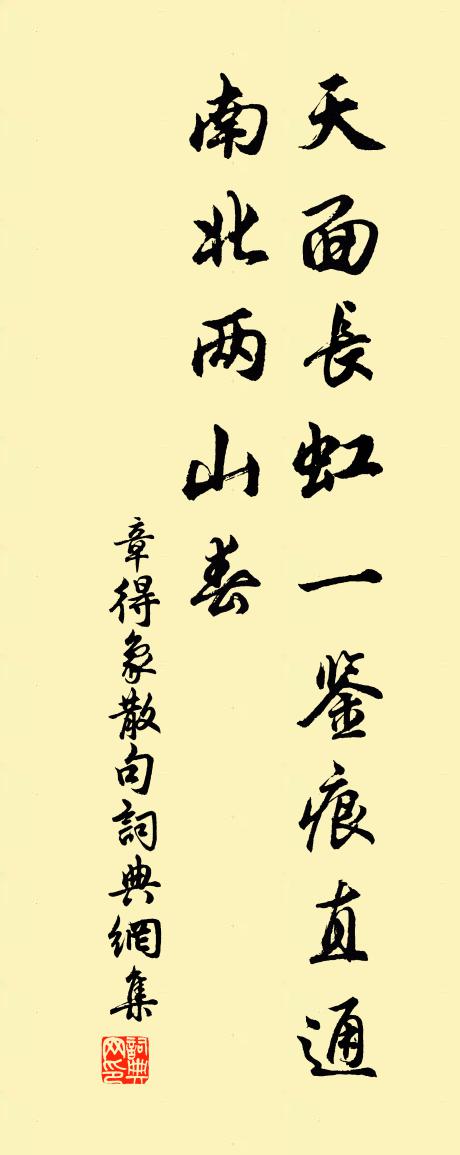 天面長虹一鉴痕直通
南北两山春
章得象散句詞典網集
詞典网印